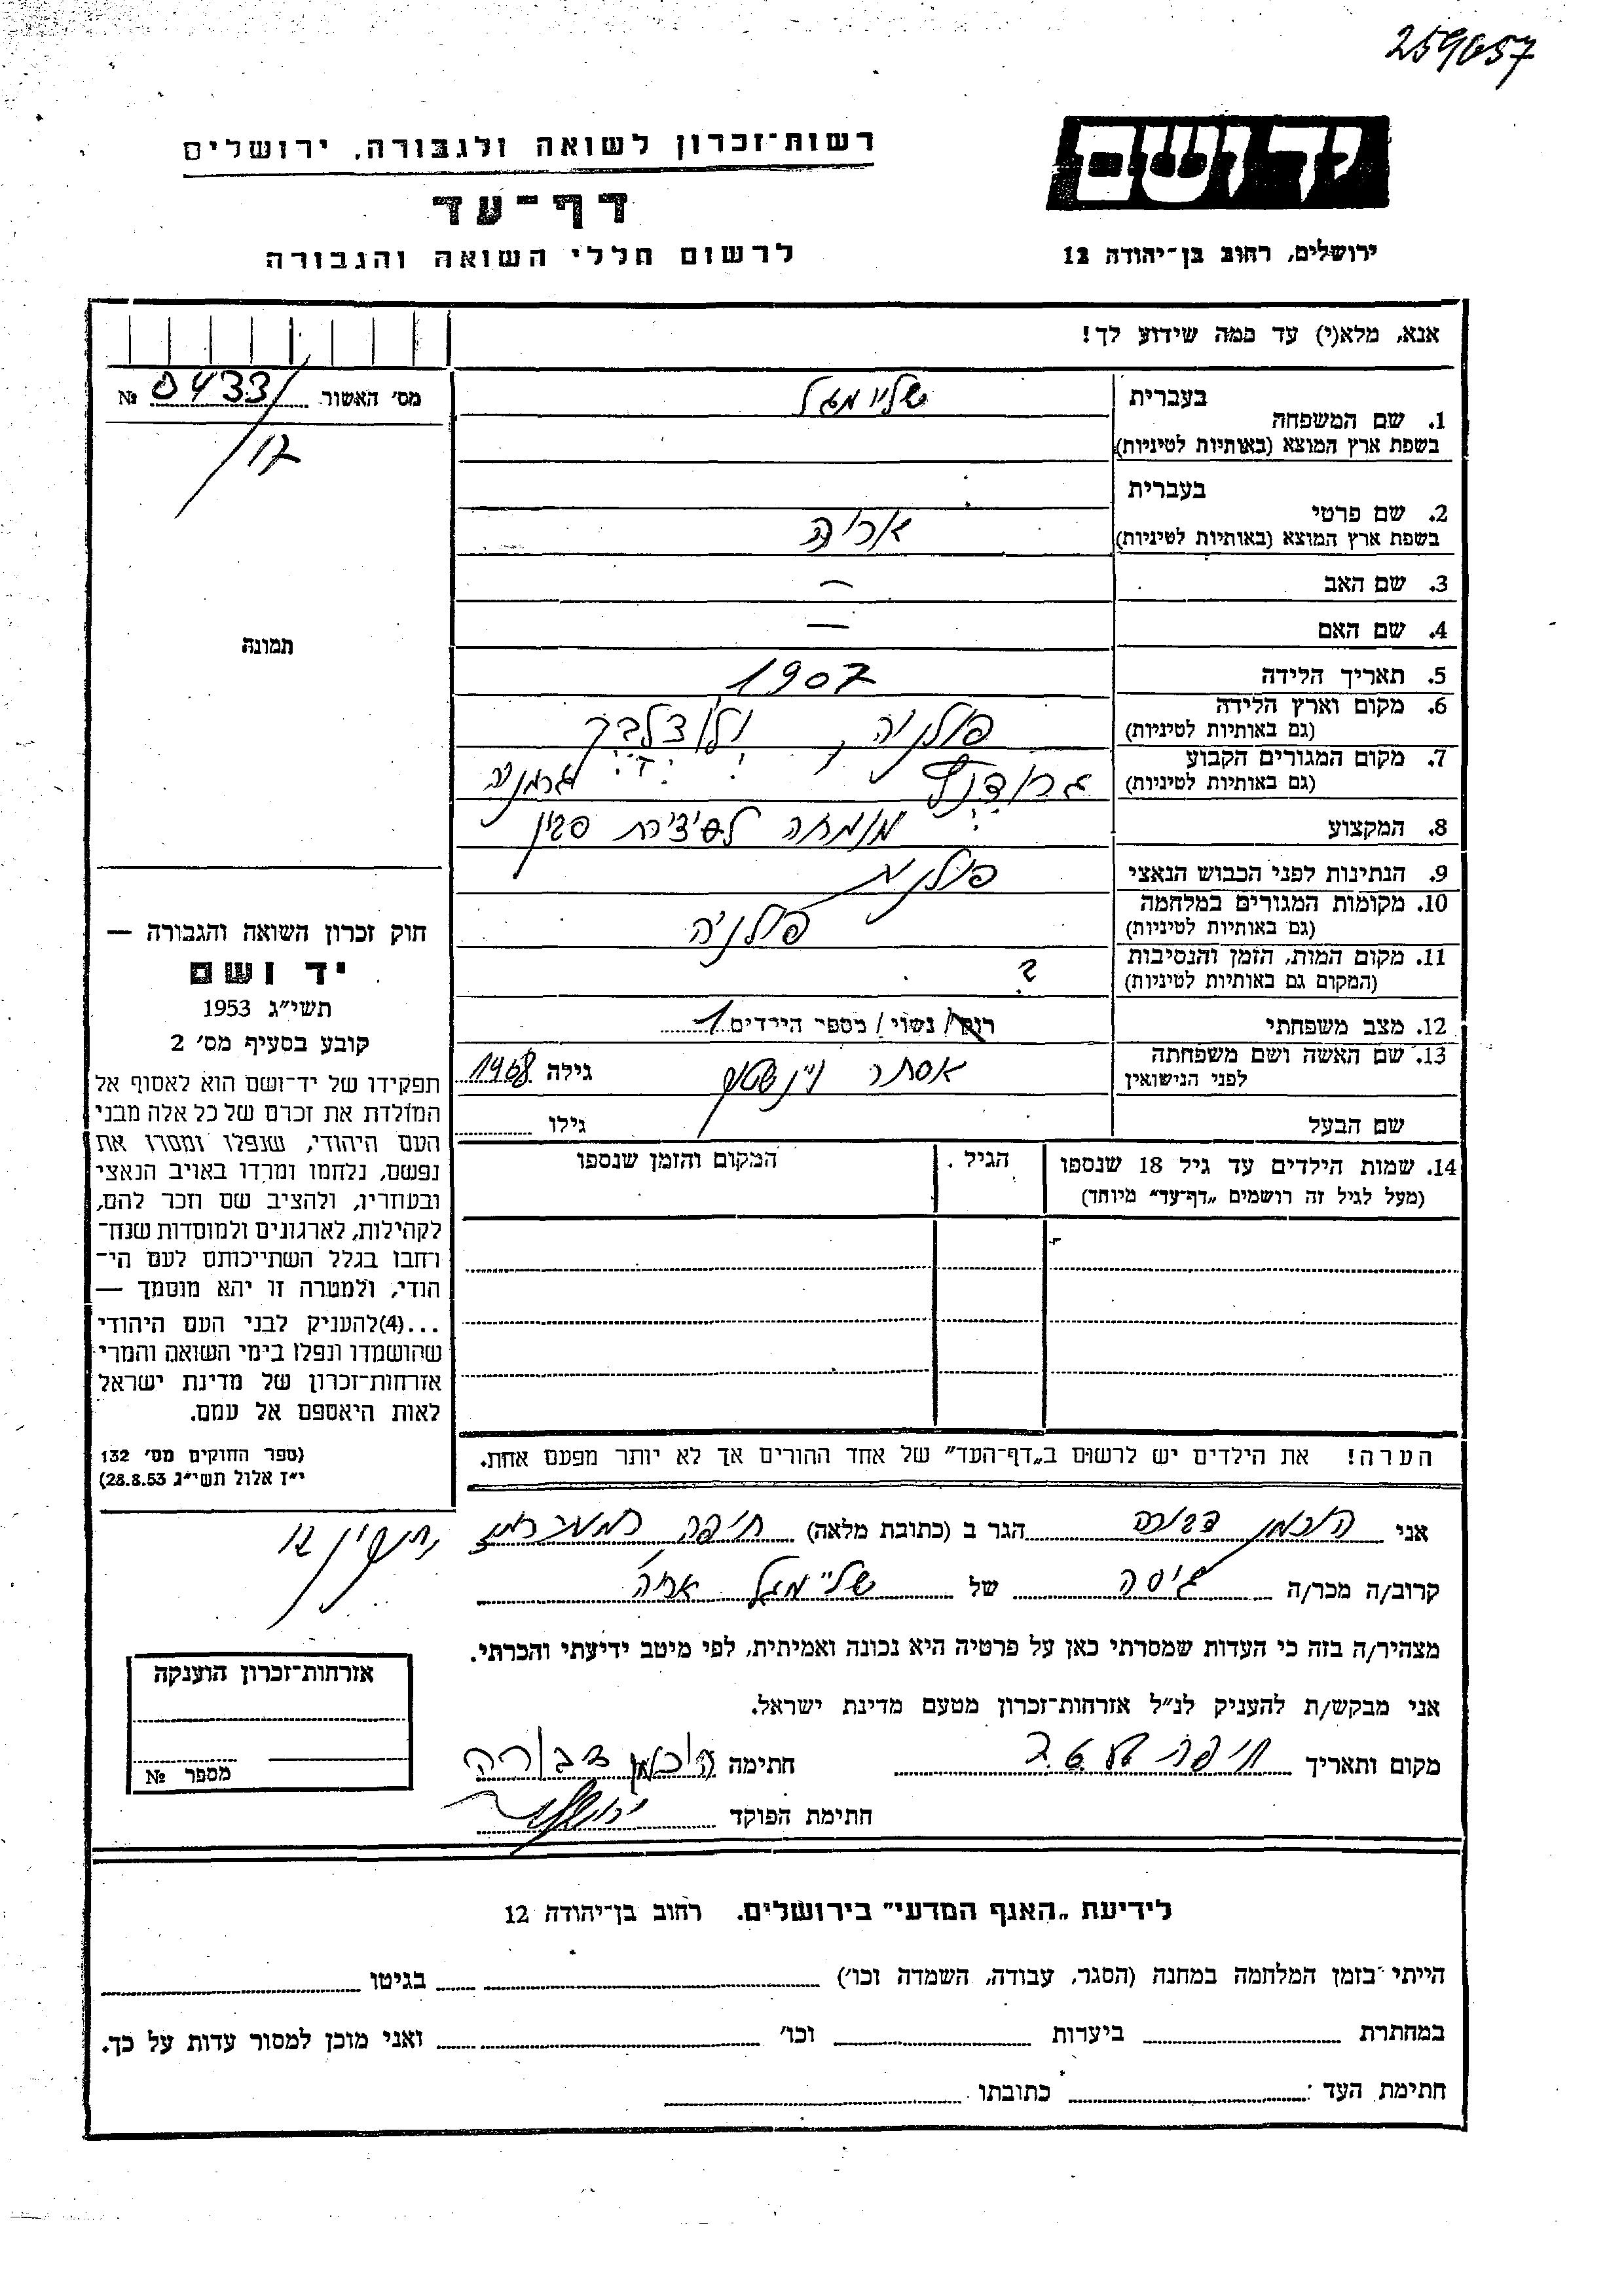 259657
יד ושם
רשות־זכרון לשואה ולגבורה, ירושלים
דף־עד
ירושלים, רחוב בן־יהודה 12
לרשום חללי השואה והגבורה
אנא, מלא(י) עד כמה שידוע לך!
מס' האשור 0433/ №
17
בעברית
1. שם המשפחה
בשפת ארץ המוצא (באותיות לטיניות)
בעברית
2. שם פרטי אריה
בשפת ארץ המוצא (באותיות לטיניות)
3. שם האב —
4. שם האם —
תמונה
5. תאריך הלידה 1907
6. מקום וארץ הלידה פולניה,
(גם באותיות לטיניות)
7. מקום המגורים הקבוע גרמניה
(גם באותיות לטיניות)
8. המקצוע מומחה
9. הנתינות לפני הכבוש הנאצי פולנית
10. מקומות המגורים במלחמה פולניה
(גם באותיות לטיניות)
11. מקום המות, הזמן והנסיבות ?
(המקום גם באותיות לטיניות)
12. מצב משפחתי רוק/ נשוי/ מספר הילדים 1
13. שם האשה ושם משפחתה אסתר גילה 1908
לפני הנישואין
שם הבעל גילו
14. שמות הילדים עד גיל 18 שנספו הגיל. המקום והזמן שנספו
(מעל לגיל זה רושמים „דף־עד” מיוחד)
הערה! את הילדים יש לרשום ב„דף־העד” של אחד ההורים אך לא יותר מפעם אחת.
חוק זכרון השואה והגבורה —
יד ושם
תשי״ג 1953
קובע בסעיף מס' 2
תפקידו של יד־ושם הוא לאסוף אל
המולדת את זכרם של כל אלה מבני
העם היהודי, שנפלו ומסרו את
נפשם, נלחמו ומרדו באויב הנאצי
ובעוזריו, ולהציב שם וזכר להם,
לקהילות, לארגונים ולמוסדות שנח־
רחבו בגלל השתייכותם לעם הי־
הודי, ולמטרה זו יהא מוסמך —
...(4)להעניק לבני העם היהודי
שהושמדו ונפלו בימי השואה והמרי
אזרחות־זכרון של מדינת ישראל
לאות היאספם אל עמם.
(ספר החוקים מס' 132
י״ז אלול תשי״ג 28.8.53)
אני דבורה הגר ב (כתובת מלאה) חיפה
קרוב/ה מכר/ה גיסה של אריה
מצהיר/ה בזה כי העדות שמסרתי כאן על פרטיה היא נכונה ואמיתית, לפי מיטב ידיעתי והכרתי.
אני מבקש/ת להעניק לנ״ל אזרחות־זכרון מטעם מדינת ישראל.
מקום ותאריך חיפה חתימה דבורה
חתימת הפוקד
אזרחות־זכרון הוענקה
מספר №
לידיעת „האגף המדעי” בירושלים. רחוב בן־יהודה 12
הייתי בזמן המלחמה במחנה (הסגר, עבודה, השמדה וכו') בגיטו
במחתרת ביערות וכו' ואני מוכן למסור עדות על כך.
חתימת העד: כתובתו